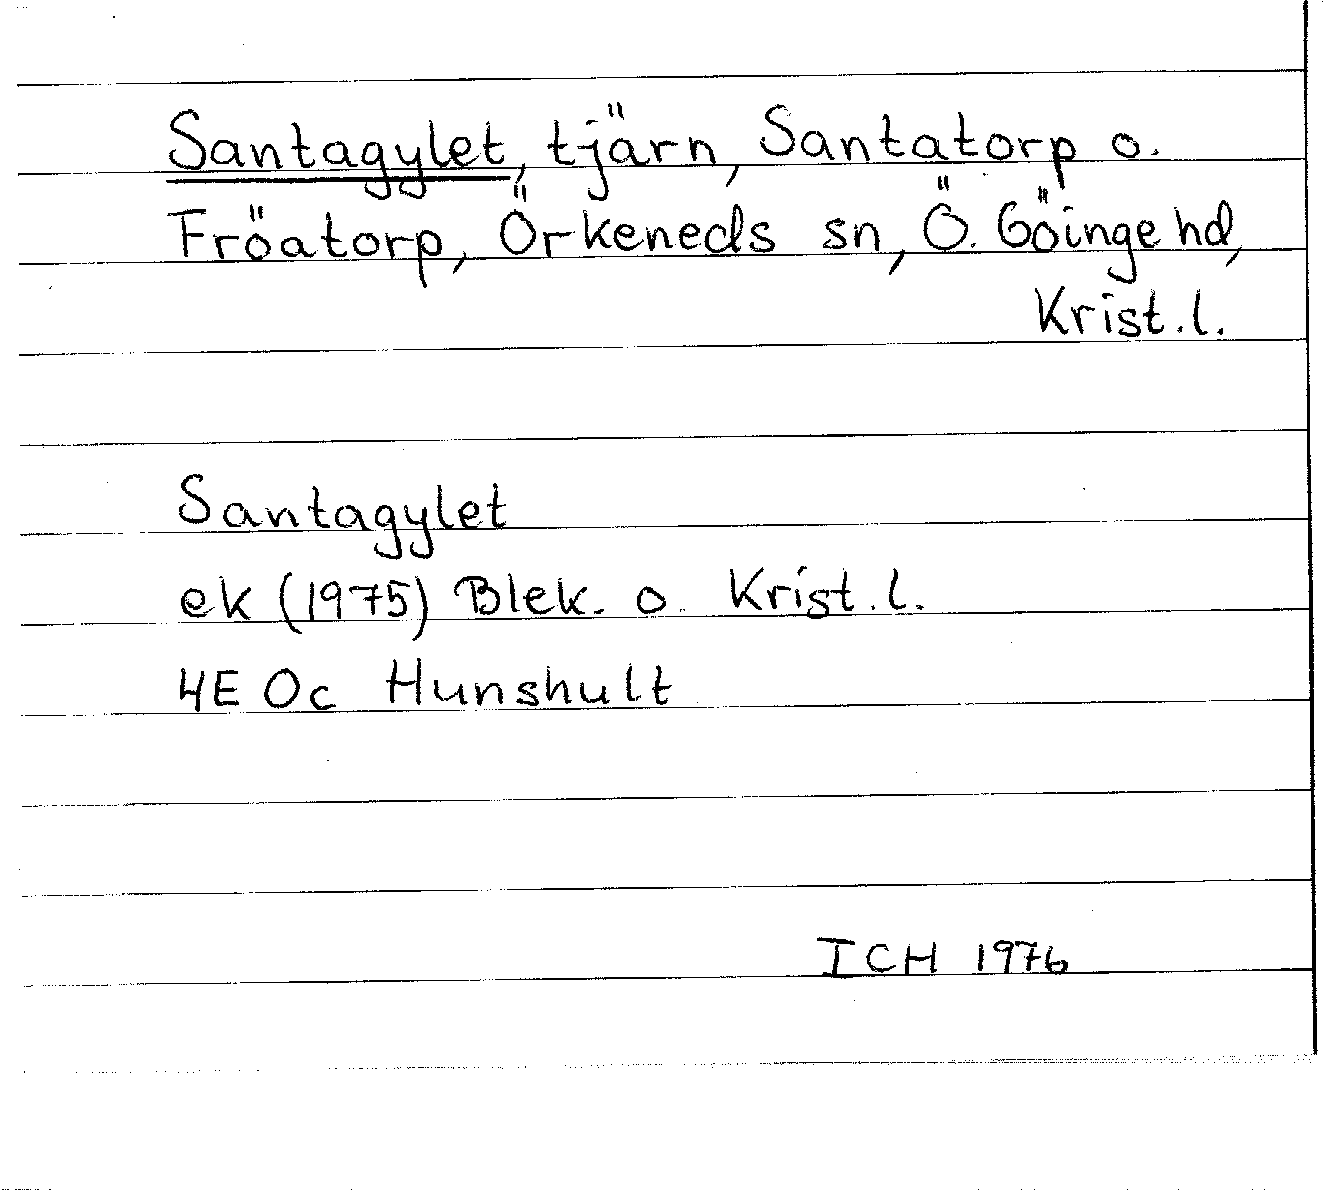 Santagylet, tjärn, Santatorp o.
Fröatorp, Örkeneds sn, Ö. Göinge hd,
Krist.l.
Santagylet
ek (1975) Blek. o. Krist.l.
4E 0c Hunshult
ICH 1976